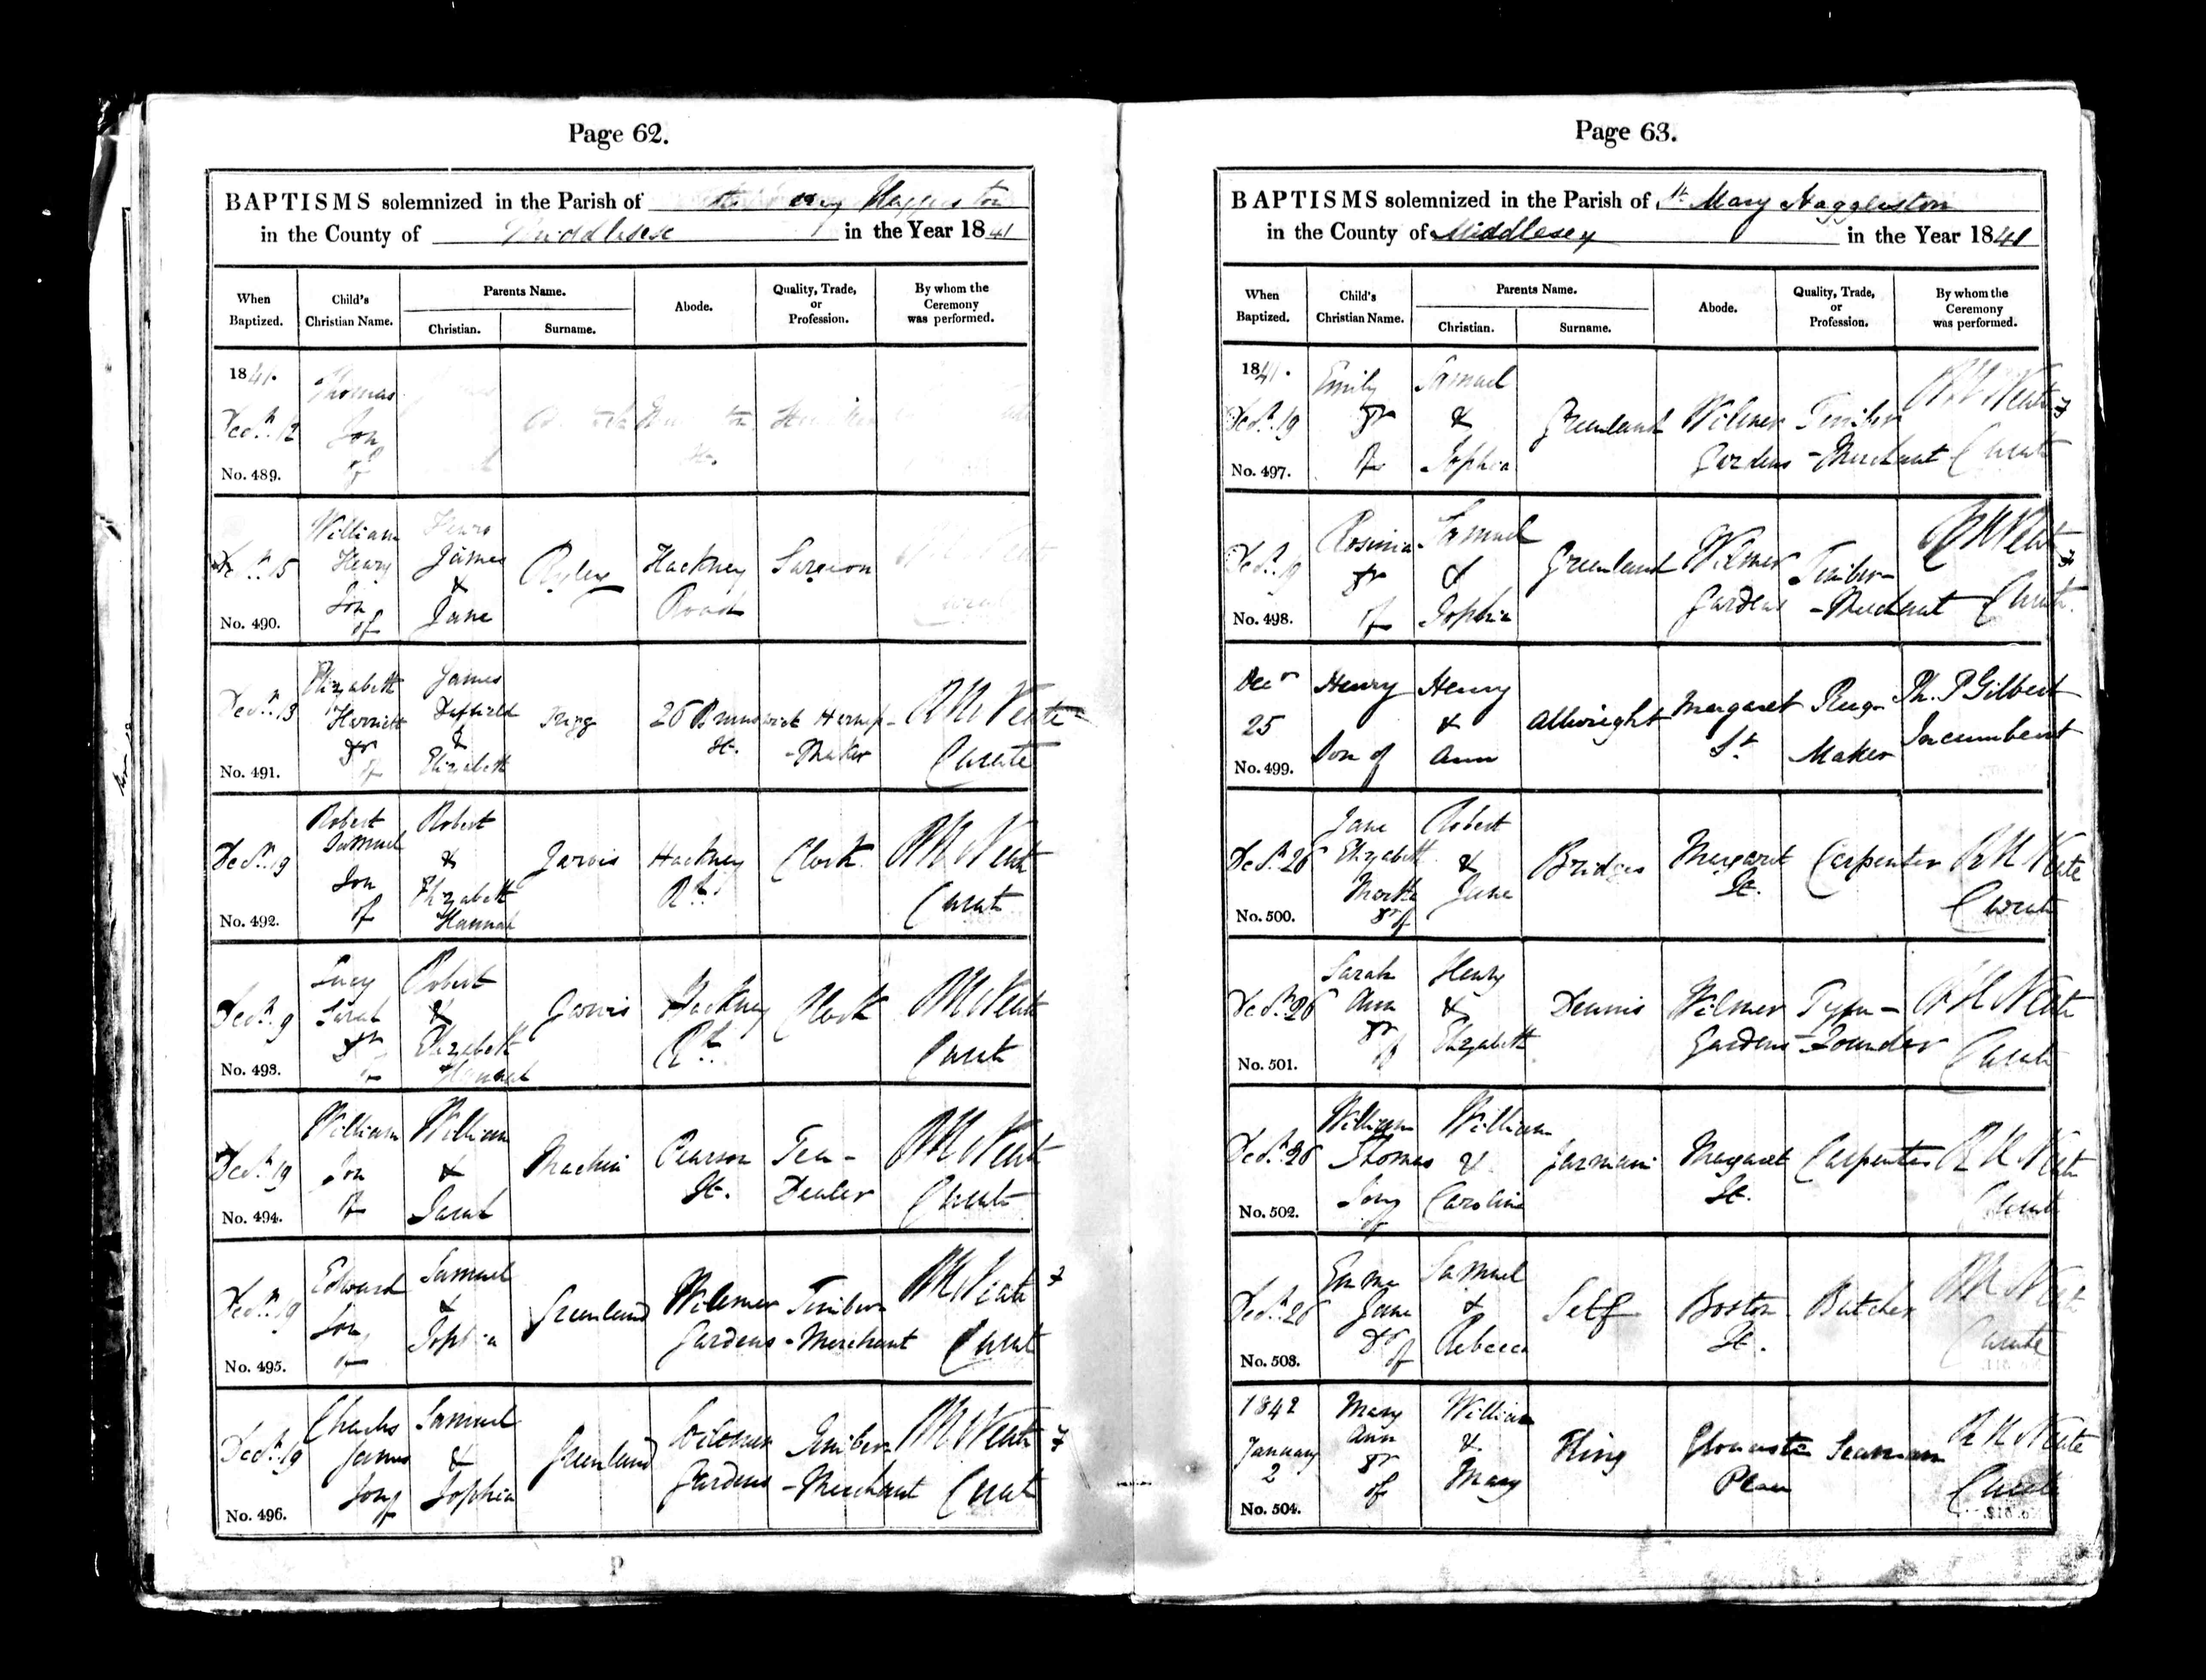 Page 62.
BAPTISMS solemnized in the Parish of Mary Haggerston
in the County of Middlesex in the Year 1841
When Baptized.
Child's Christian Name.
Parents Name.
Christian.
Surname.
Abode.
Quality, Trade, or Profession.
By whom the Ceremony was performed.
1841.
Decr. 12
No. 489.
Thomas
Son
of
St.
Decr. 15
No. 490.
William
Henry
Son
of
James
&
Jane
Hackney
Road
Curate
Decr. 13
No. 491.
Elizabeth
Harriett
Dr
of
James
&
Elizabeth
26 Brunswick
St.
-Maker
R M Neate
Curate
Decr. 19
No. 492.
Robert
Samuel
Son
of
Robert
&
Elizabeth
Hannah
Jarvis
Hackney
Rd.
Clerk
R M Neate
Curate
Decr. 19
No. 493.
Lucy
Sarah
Dr
of
Robert
&
Elizabeth
Hannah
Jarvis
Hackney
Rd.
Clerk
R M Neate
Curate
Decr. 19
No. 494.
William
Son
of
William
&
Sarah
Machin
Pearson
St.
Tea-
Dealer
R M Neate
Curate
Decr. 19
No. 495.
Edward
Son
of
Samuel
&
Sophia
Greenland
Wilmer
Gardens
Timber
-Merchant
R M Neate
Curate
Decr. 19
No. 496.
Charles
James
Son of
Samuel
&
Sophia
Greenland
Wilmer
Gardens
Timber
-Merchant
R M Neate
Curate
P
Page 63.
BAPTISMS solemnized in the Parish of St. Mary Haggerston
in the County of Middlesex in the Year 1841
When Baptized.
Child's Christian Name.
Parents Name.
Christian.
Surname.
Abode.
Quality, Trade, or Profession.
By whom the Ceremony was performed.
1841.
Decr. 19
No. 497.
Emily
Dr
of
Samuel
&
Sophia
Greenland
Wilmer
Gardens
Timber
-Merchant
R M Neate
Curate
Decr. 19
No. 498.
Rosina
Dr
of
Samuel
&
Sophia
Greenland
Wilmer
Gardens
Timber-
-Merchant
R M Neate
Curate.
Decr
25
No. 499.
Henry
Son of
Henry
&
Ann
Allwright
Margaret
St
Rug
Maker
Ph. P Gilbert
Incumbent
Decr. 26
No. 500.
Jane
Elizabeth
Martha
Dr of
Robert
&
Jane
Bridges
Margaret
St.
Carpenter
R M Neate
Curate
Decr. 26
No. 501.
Sarah
Ann
Dr
of
Henry
&
Elizabeth
Dennis
Wilmer
Gardens
Type-
-Founder
R M Neate
Curate
Decr. 26
No. 502.
William
Thomas
Son
of
William
&
Caroline
Jarman
Margaret
St.
Carpenter
R M Neate
Curate
Decr. 26
No. 503.
Emma
Jane
Dr of
Samuel
&
Rebecca
Self
Boston
St.
Butcher
R M Neate
Curate
1842
January
2
No. 504.
Mary
Ann
Dr
of
William
&
Mary
Gloucester
Place
Seaman
R M Neate
Curate